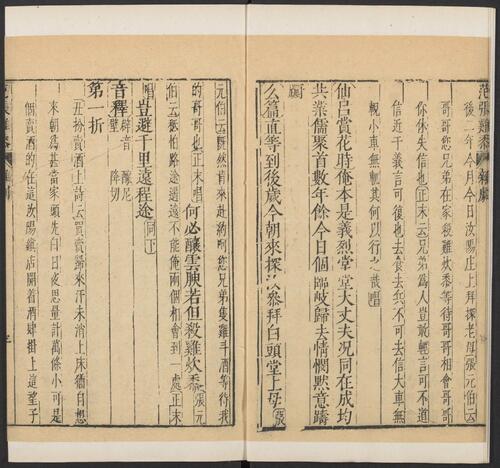 范張雞黍
楔子
後二年今月今日汝陽庄上拜探老母張元伯云
哥哥您兄弟在家殺雞炊黍等待哥哥相會哥哥
你休失信也正末云兄弟為人豈敢輕言可不道
信近于義言可復也去食去兵不可去信大車無
輗小車無軏其何以行之哉唱
仙呂賞花時俺本是義烈堂堂大丈夫況同在成均
共業儒聚首數年餘今日個臨岐歸去情慘默意躊
躕
么篇直等到後歲今朝來探汝參拜白頭堂上母張
元伯云既然肯來赴約呵您兄弟隻雞斗酒等待我
的哥哥也正末唱何必釀雲腴若但殺雞炊黍張元
伯云秖怕路途遙遠不能俺兩個相會到一處正末
唱豈避千里遠程途同下
音釋 辟音壁 釀尼降切
第一折
丑扮賣酒上詩云買賣歸來汗未消上床猶自想
來朝為甚當家頭先白日夜思量計萬條小可是
個賣酒的在這汝陽鎮店開着酒肆掛上這望子